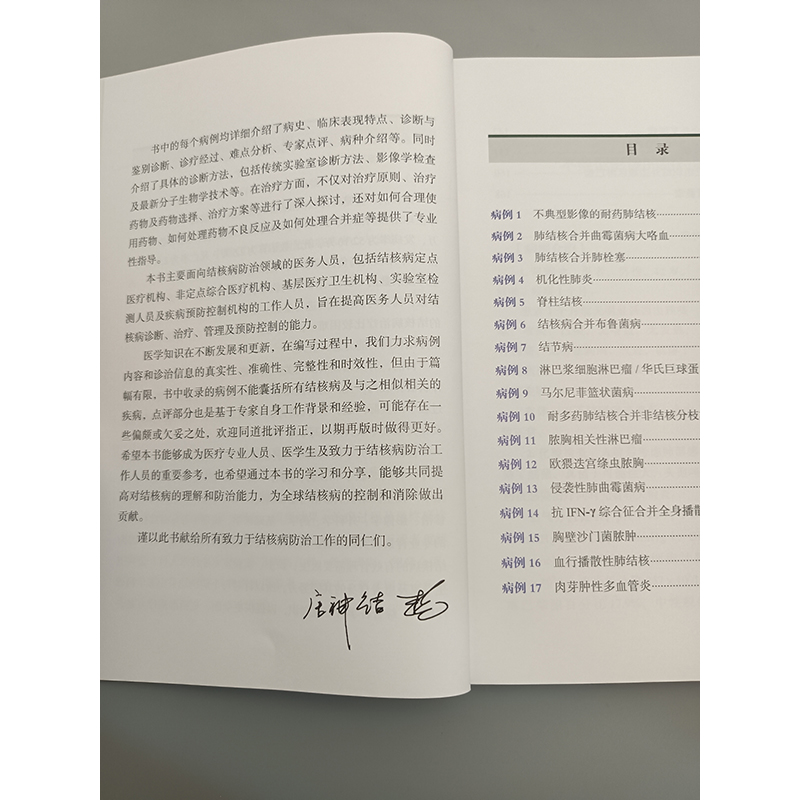 书中的每个病例均详细介绍了病史、临床表现特点、诊断与
鉴别诊断、诊疗经过、难点分析、专家点评、病种介绍等。同时
介绍了具体的诊断方法，包括传统实验室诊断方法、影像学检查
及最新分子生物学技术等。在治疗方面，不仅对治疗原则、治疗
药物及药物选择、治疗方案等进行了深入探讨，还对如何合理使
用药物、如何处理药物不良反应及如何处理合并症等提供了专业
性指导。
本书主要面向结核病防治领域的医务人员，包括结核病定点
医疗机构、非定点综合医疗机构、基层医疗卫生机构、实验室检
测人员及疾病预防控制机构的工作人员，旨在提高医务人员对结
核病诊断、治疗、管理及预防控制的能力。
医学知识在不断发展和更新，在编写过程中，我们力求病例
内容和诊治信息的真实性、准确性、完整性和时效性，但由于篇
幅有限，书中收录的病例不能囊括所有结核病及与之相似相关的
疾病，点评部分也是基于专家自身工作背景和经验，可能存在一
些偏颇或欠妥之处，欢迎同道批评指正，以期再版时做得更好。
希望本书能够成为医疗专业人员、医学生及致力于结核病防治工
作人员的重要参考，也希望通过本书的学习和分享，能够共同提
高对结核病的理解和防治能力，为全球结核病的控制和消除做出
贡献。
谨以此书献给所有致力于结核病防治工作的同仁们。
目 录
病例 1 不典型影像的耐药肺结核
病例 2 肺结核合并曲霉菌病大咯血
病例 3 肺结核合并肺栓塞
病例 4 机化性肺炎
病例 5 脊柱结核
病例 6 结核病合并布鲁菌病
病例 7 结节病
病例 8 淋巴浆细胞淋巴瘤/华氏巨球蛋
病例 9 马尔尼菲篮状菌病
病例 10 耐多药肺结核合并非结核分枝
病例 11 脓胸相关性淋巴瘤
病例 12 欧猥迭宫绦虫脓胸
病例 13 侵袭性肺曲霉菌病
病例 14 抗 IFN-γ 综合征合并全身播散
病例 15 胸壁沙门菌脓肿
病例 16 血行播散性肺结核
病例 17 肉芽肿性多血管炎